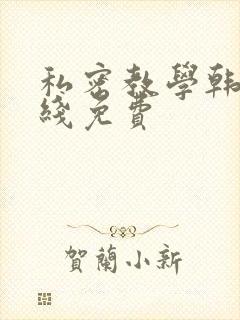 私密教學韓
綫免費
賀蘭小新